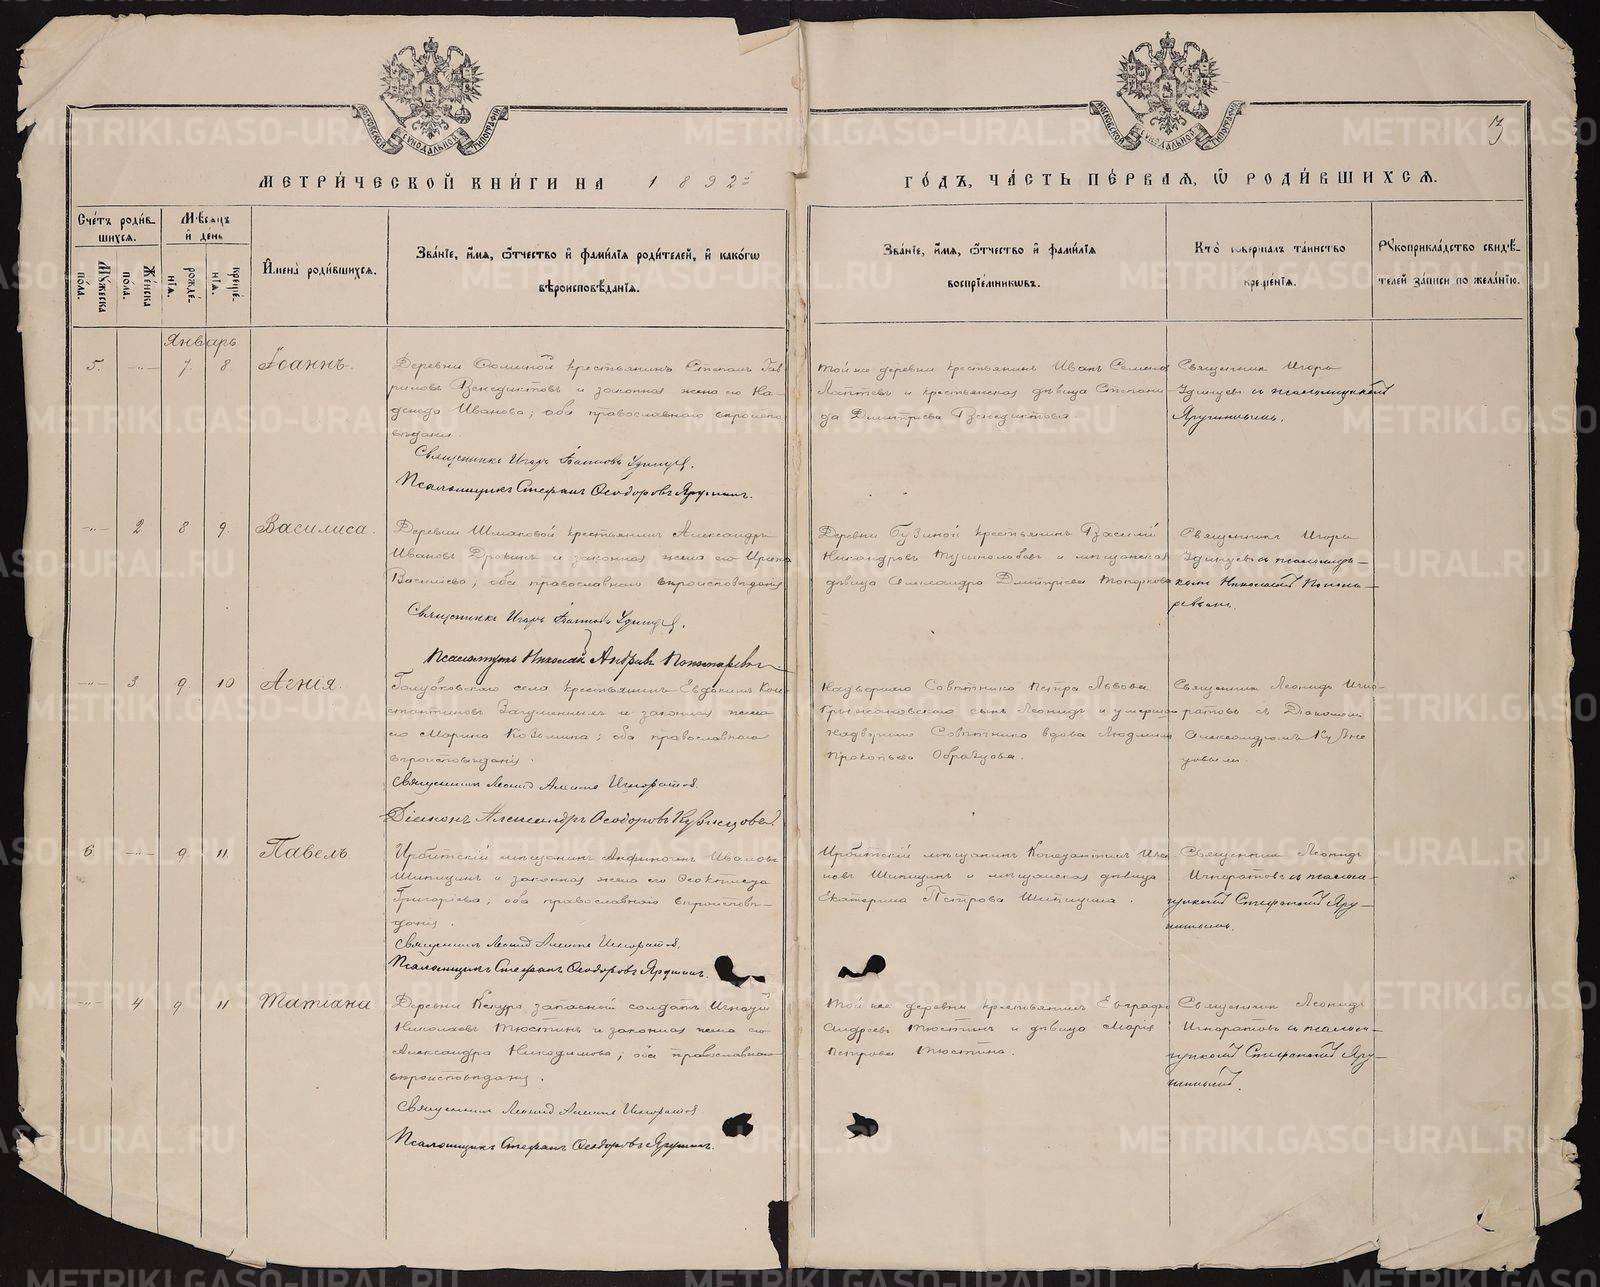 МЕТРИ́ЧЕСКОЙ КНИ́ГИ НА 1892й
ГО́ДЪ, ЧА́СТЬ ПЕ́РВАЯ, Ѿ РОДИ́ВШИХСЯ.
3
МОСКОВСКОЙ СѴНОДАЛЬНОЙ ТИПОГРАФІИ
МОСКОВСКОЙ СѴНОДАЛЬНОЙ ТИПОГРАФІИ
Сче́тъ роди́в-
шихся.
Мꙋ́жеска по́ла.
Же́нска по́ла.
Мѣ́сяцъ
и҆ де́нь
рожде́-
нїѧ.
креще́-
нїѧ.
И҆мена̀ роди́вшихся.
Зва́нїе, и҆́мѧ, ѻ҆́тчество и҆ фами́лїѧ роди́телей, и҆ како́гѡ
вѣроисповѣ́данїѧ.
Зва́нїе, и҆́мѧ, ѻ҆́тчество и҆ фами́лїѧ
воспрїе́мникѡвъ.
Кто̀ соверша́лъ та́инство
креще́нїѧ.
Рꙋкоприкла́дство свидѣ́-
телей за́писи по жела́нїю.
Январь
5. -"- 7. 8. Іоаннъ.
Деревни Фоминой крестьянинъ Степанъ Гав-
риловъ Венедиктовъ и законная жена его На-
дежда Иванова; оба православнаго вѣроиспо-
вѣданія.
Священникъ Игорь Іоанновъ Удинцев.
Псаломщикъ Стефанъ Ѳеодоровъ Ярушинъ.
Той же деревни крестьянинъ Иванъ Семеновъ
Лаптевъ и крестьянская дѣвица Степани-
да Димитріева Венедиктова.
Священникъ Игорь
Удинцевъ съ псаломщикомъ
Ярушинымъ.
-"- 2 8 9. Василиса.
Деревни Шмаковой крестьянинъ Александръ
Ивановъ Дрокинъ и законная жена его Ирина
Васильева; оба православнаго вѣроисповѣданія
Священникъ Игорь Іоанновъ Удинцев.
Псаломщикъ Николай Андреевъ Пономаревъ
Деревни Бузиной крестьянинъ Василій
Никандровъ и мѣщанская
дѣвица Александра Димитріева Топоркова
Священникъ Игорь
Удинцевъ съ псаломщи-
комъ Николаемъ Понома-
ревымъ.
-"- 3 9. 10 Агнія.
Голубковскаго села крестьянинъ Евдокимъ Кон-
стантиновъ Загуменныхъ и законная жена
его Марина Козьмина; оба православнаго
вѣроисповѣданія.
Священникъ Леонидъ Игноратовъ.
Діаконъ Александръ Ѳеодоровъ Кузнецовъ.
Надворнаго Совѣтника Петра Львова
Крыжановскаго сынъ Леонидъ и умершаго
Надворнаго Совѣтника вдова Людмила
Прокопьева Образцова.
Священникъ Леонидъ Игно-
ратовъ съ Діакономъ
Александромъ Кузне-
цовымъ.
6 -"- 9. 11. Павелъ.
Ирбитскій мѣщанинъ Ивановъ
Шипицинъ и законная жена его Ѳеоктиста
Григорьева; оба православнаго вѣроисповѣ-
данія.
Священникъ Леонидъ Игноратовъ.
Псаломщикъ Стефанъ Ѳеодоровъ Ярушинъ.
Ирбитскій мѣщанинъ Константинъ Ива-
новъ Шипицинъ и мѣщанская дѣвица
Екатерина Петрова Шипицина.
Священникъ Леонидъ
Игноратовъ съ псалом-
щикомъ Стефаномъ Яру-
шинымъ.
-"- 4 9 11 Татіана
Деревни Кекура запасный солдатъ Игнатій
Николаевъ Тюстинъ и законная жена его
Александра Никодимова; оба православнаго
вѣроисповѣданія.
Священникъ Леонидъ Игноратовъ
Псаломщикъ Стефанъ Ѳеодоровъ Ярушинъ.
Той же деревни крестьянинъ Евграфъ
Андреевъ Тюстинъ и дѣвица Марія
Петрова Тюстина.
Священникъ Леонидъ
Игноратовъ съ псалом-
щикомъ Стефаномъ Яру-
шинымъ.
METRIKI.GASO-URAL.RU